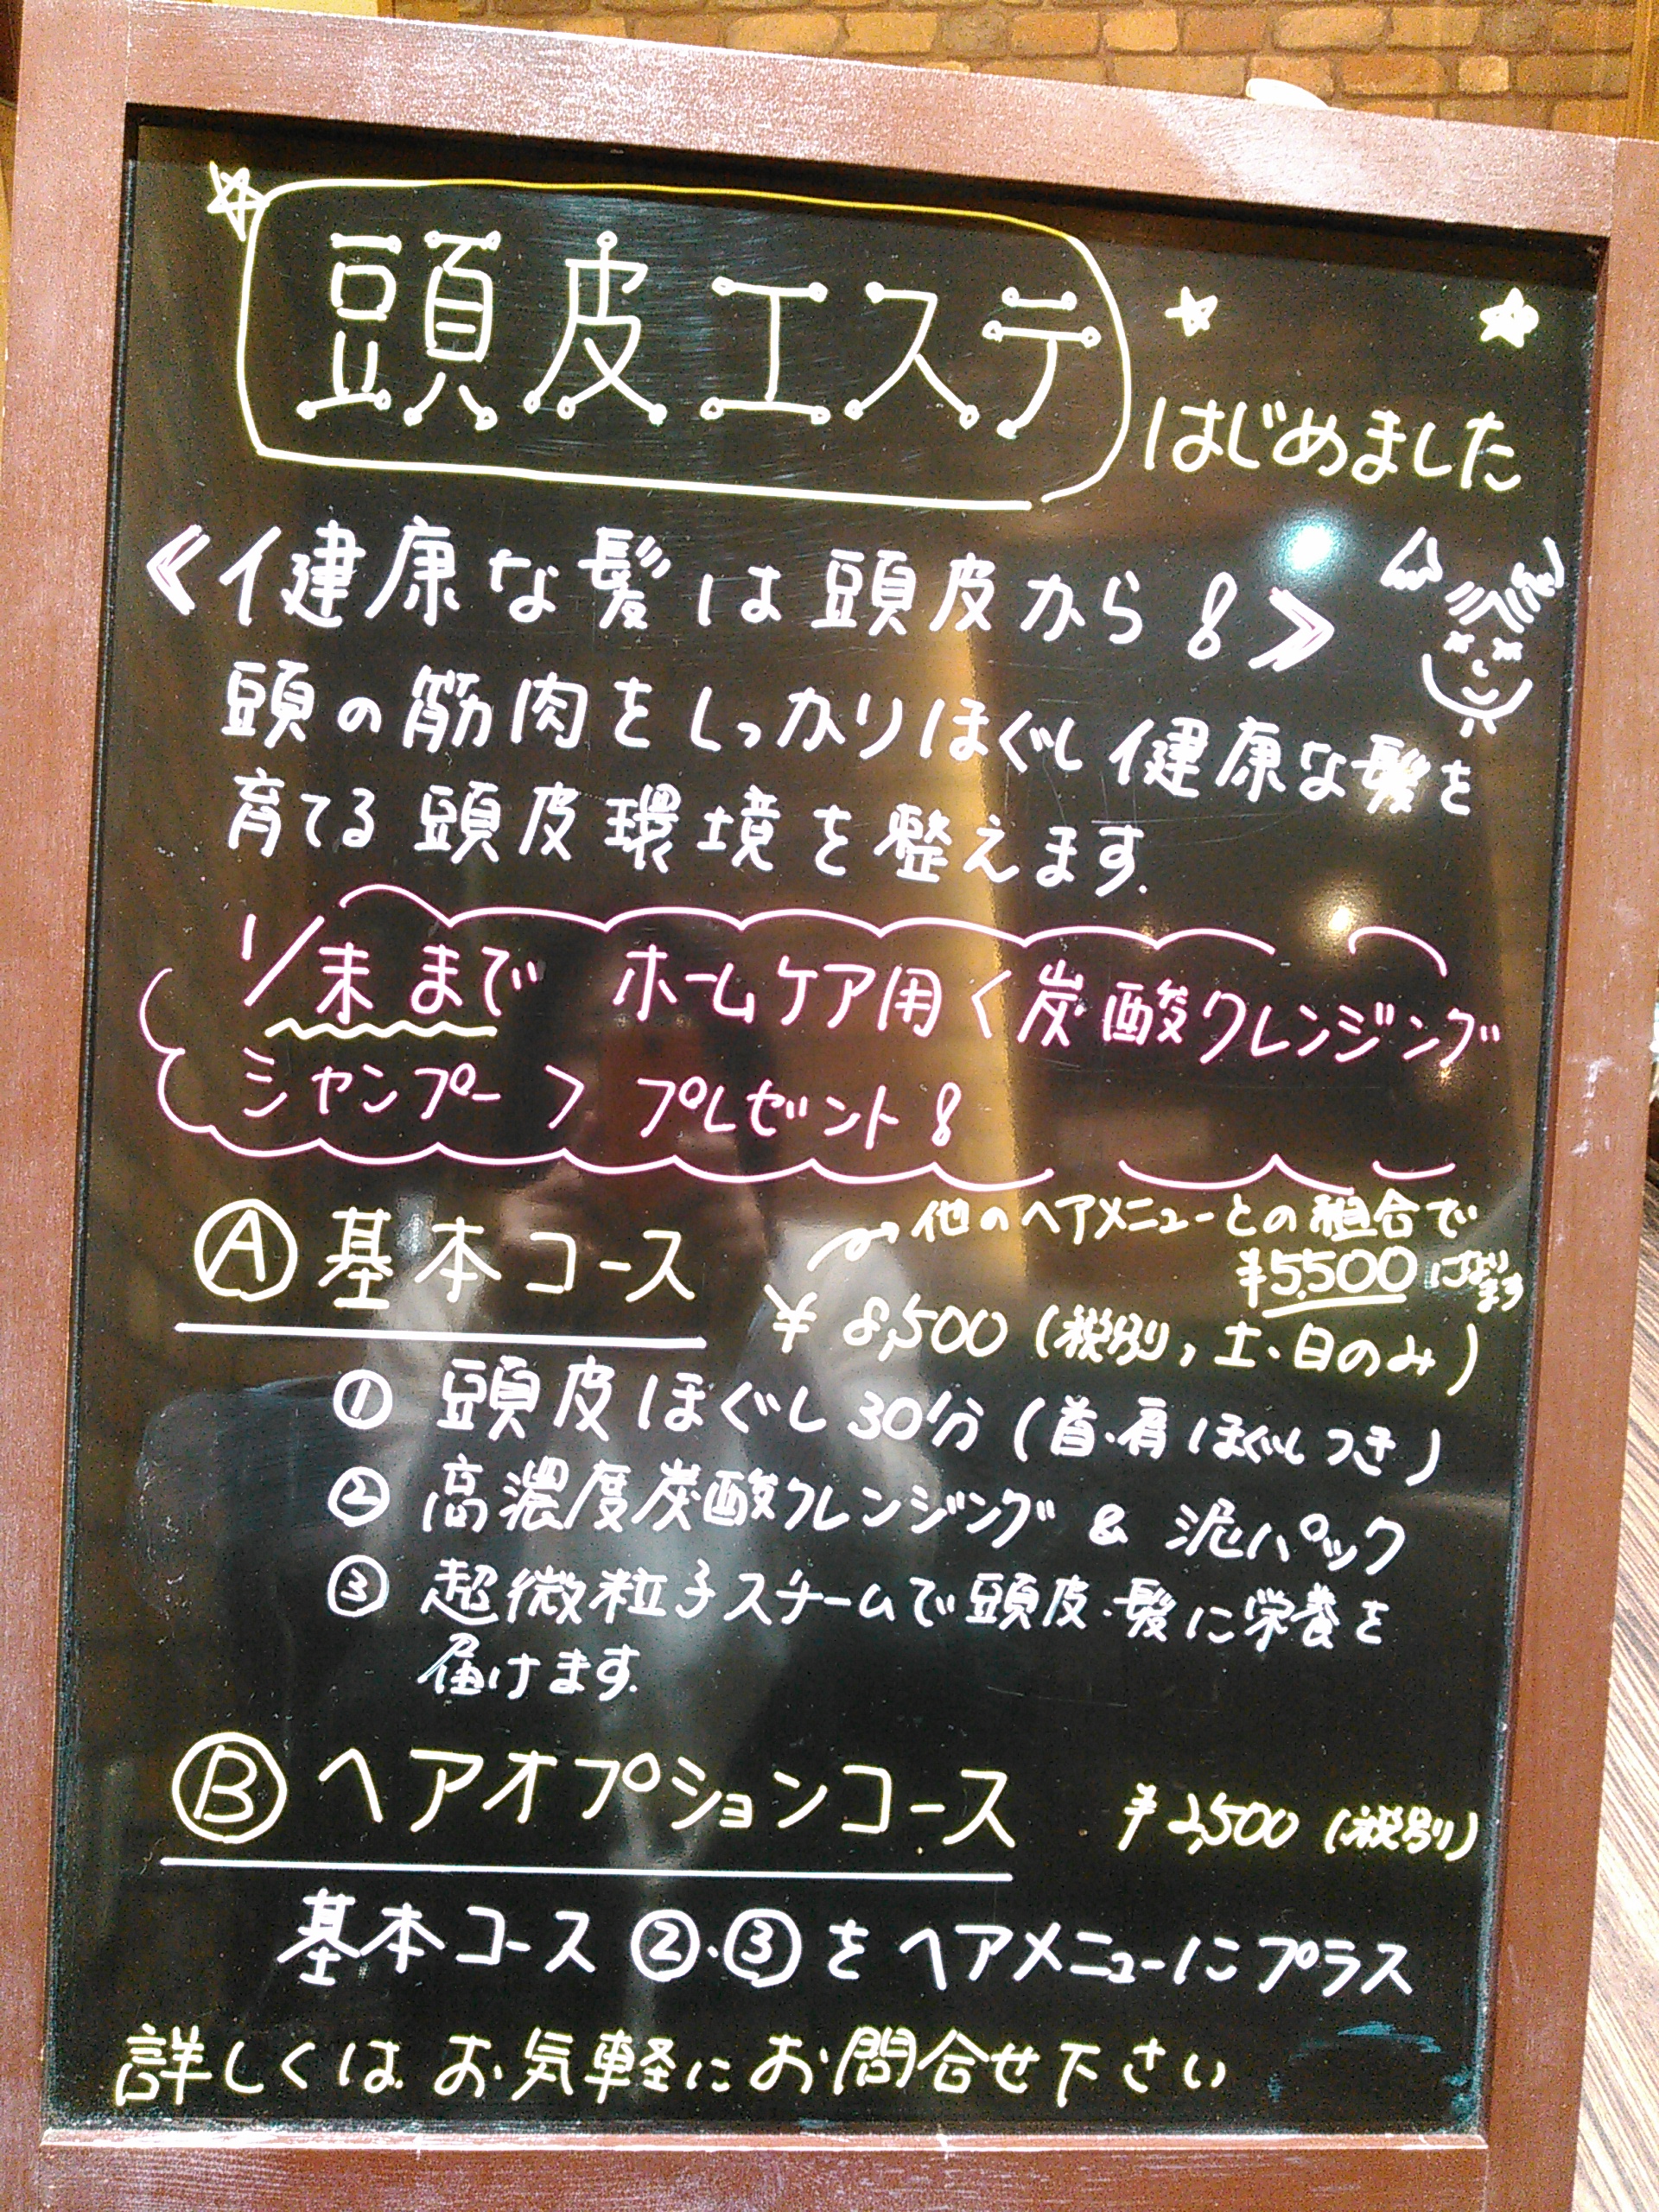 頭皮エステ
はじめました
《健康な髪は頭皮から!》
頭の筋肉をしっかりほぐし健康な髪を
育てる頭皮環境を整えます.
1/末まで ホームケア用<炭酸クレンジング
シャンプー>プレゼント!
Ⓐ基本コース
他のヘアメニューとの組合で
¥5,500になります
¥8,500(税別,土・日のみ)
① 頭皮ほぐし30分(首・肩ほぐしつき)
② 高濃度炭酸クレンジング & 泥パック
③ 超微粒子スチームで頭皮・髪に栄養を
届けます.
Ⓑヘアオプションコース ¥2,500(税別)
基本コース②・③をヘアメニューにプラス
詳しくはお気軽にお問合せ下さい